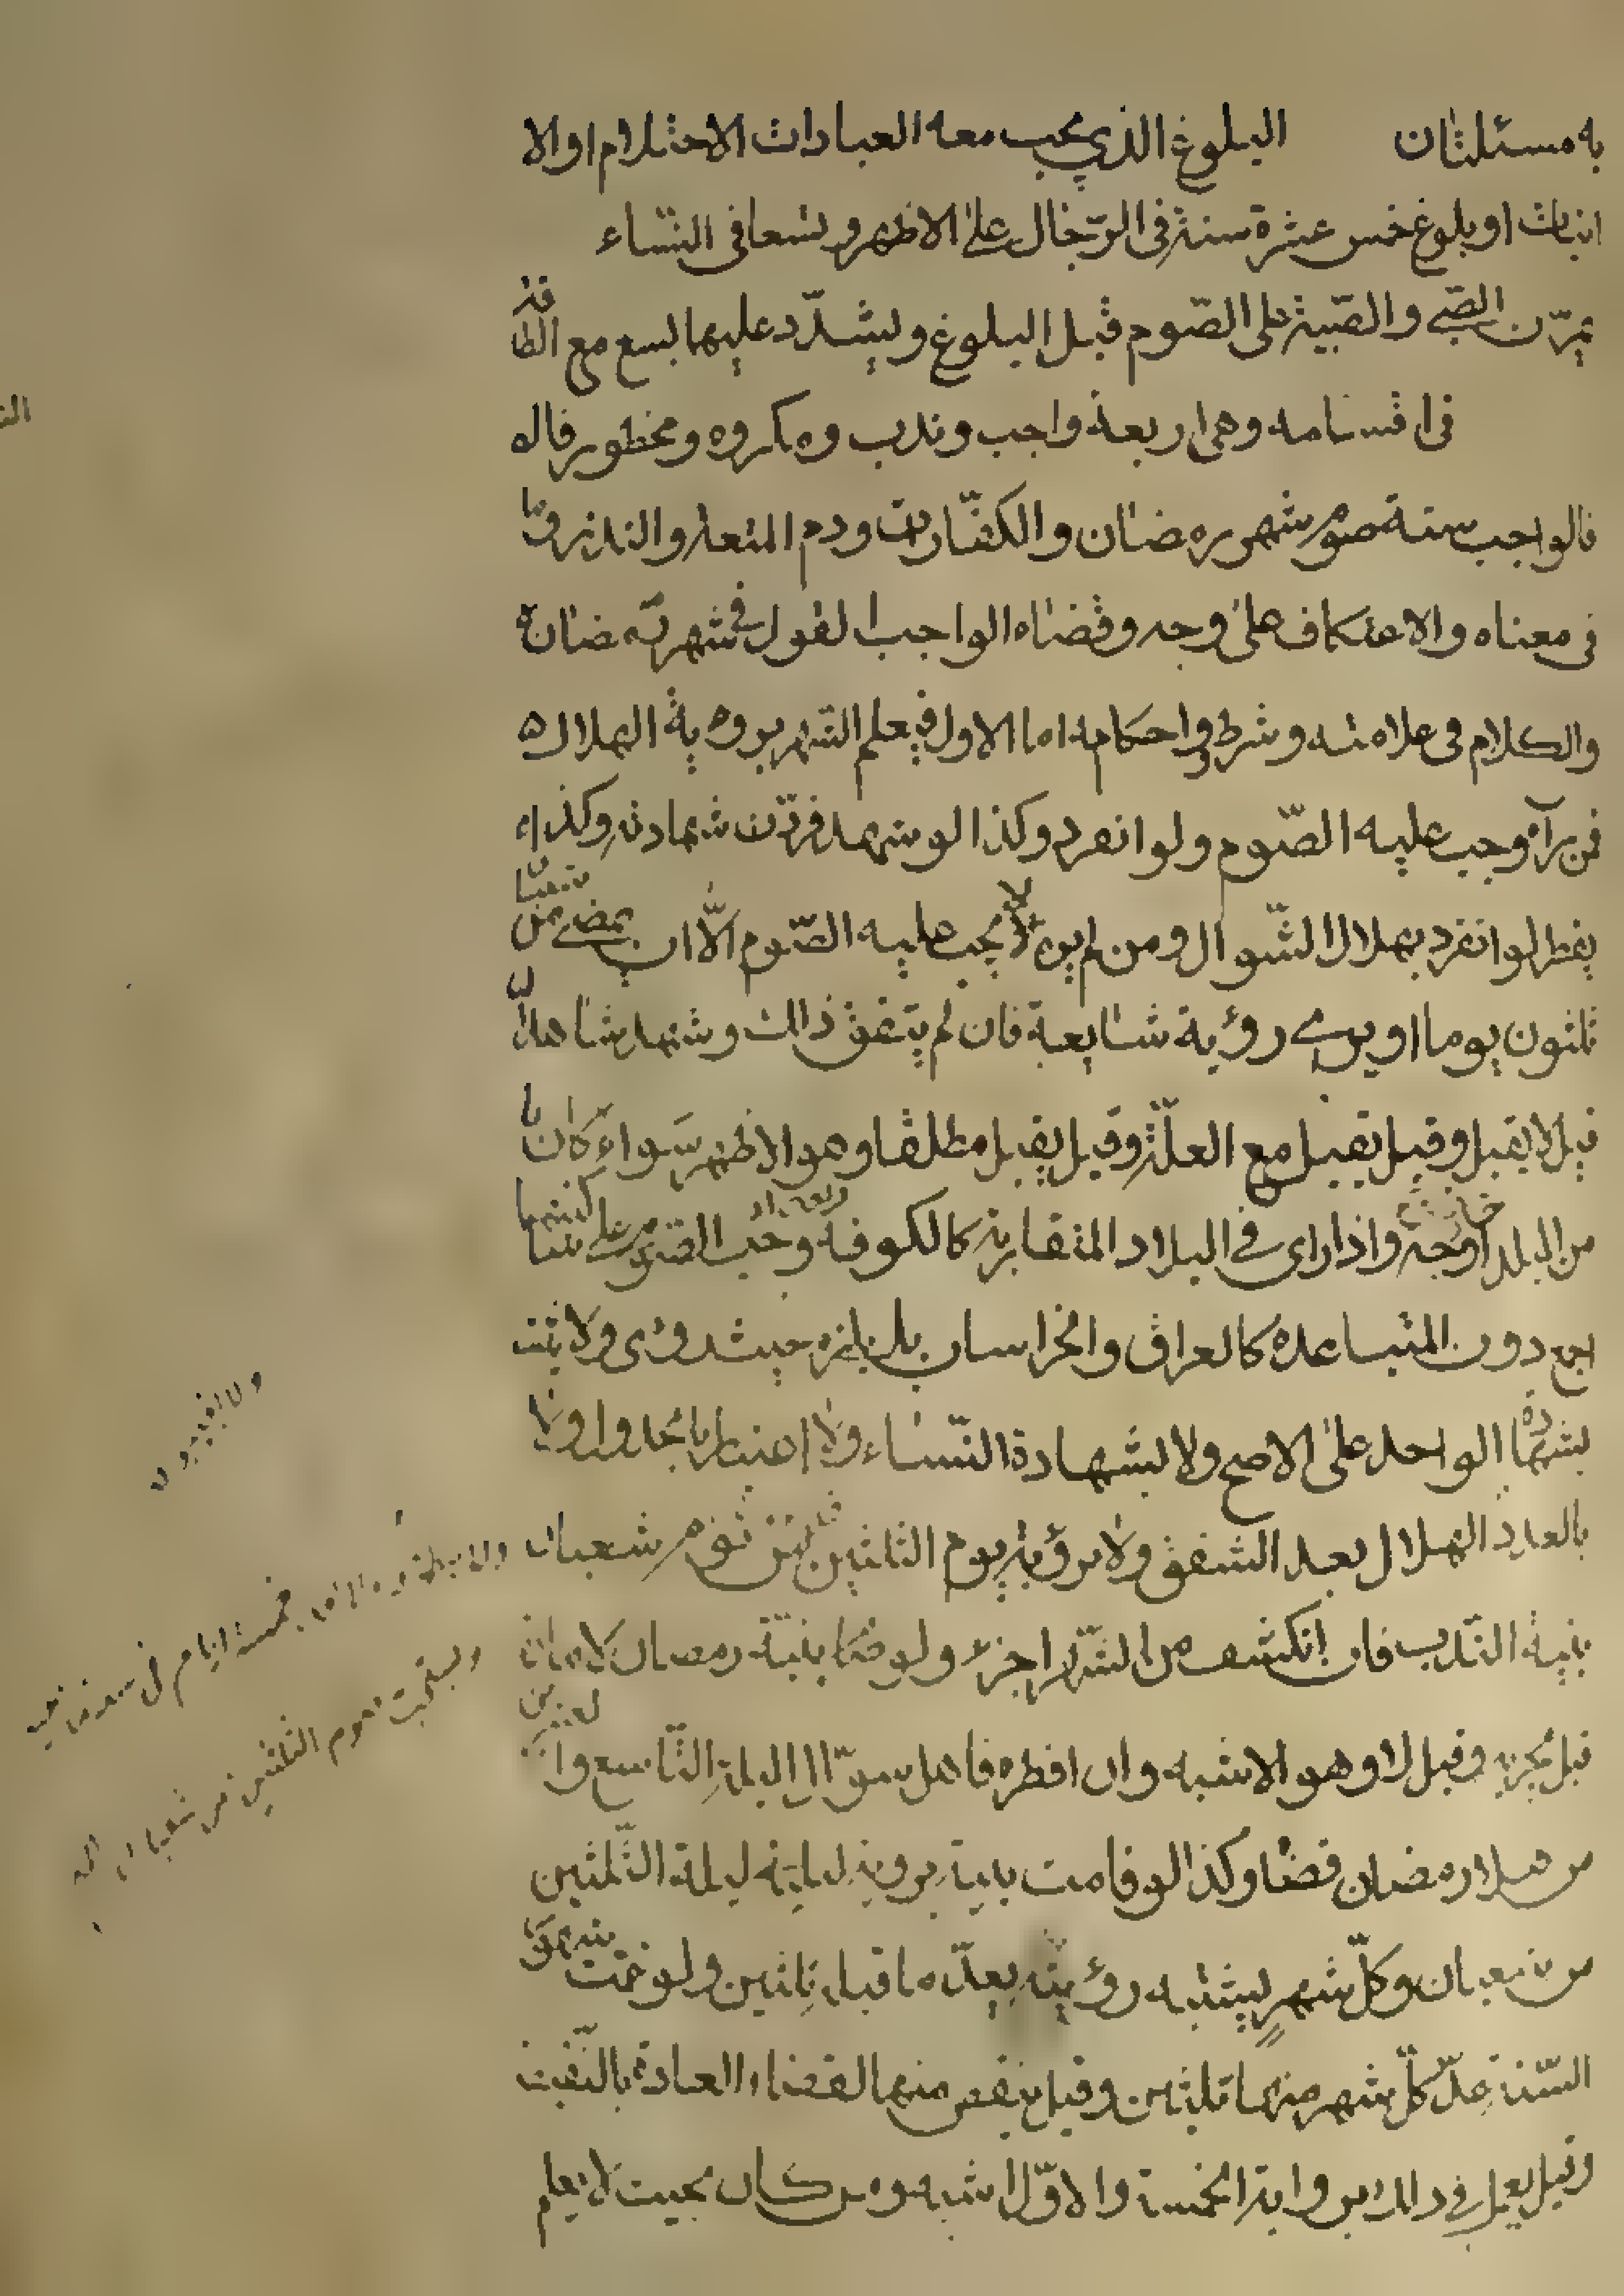 به مسئلتان البلوغ الذي يجب معه العبادات الاحتلام او الا
نبات او بلوغ خمس عشرة سنة في الرّجال على الاظهر و تسعا في النساء
يمرّن الصّبي و الصّبية على الصّوم قبل البلوغ و يشدّد عليهما لسبع مع الطاقة
في اقسامه وهي اربعة واجب وندب ومكروه ومحظور
فالواجب ستة صوم شهر رمضان والكفّارات ودم المتعة والنذر وما
في معناه والاعتكاف على وجه وقضاء الواجب القول في شهر رمضان
والكلام في علامته وشرطه واحكامه اما الاول فيعلم الشهر برؤية الهلال
فمن رآه وجب عليه الصّوم ولو انفرد وكذا لو شهد فردّت شهادته وكذا
يفطر لو انفرد بهلال الشّوال ومن لم يره لا يجب عليه الصّوم الّا ان يمضي من شعبان
ثلثون يوما او يرى رؤية شايعة فان لم يتفق ذلك وشهد شاهدان
قيل لا يقبل وقيل يقبل مع العلّة وقيل يقبل مطلقا وهو الاظهر سواء كانا
من البلد او خارجه واذا رای في البلاد المتقاربة كالكوفة وبغداد وجب الصّوم على ساكنيهما
اجمع دون المتباعدة كالعراق والخراسان بل يلزم حيث روى ولا يثبت
بشهادة الواحد على الاصح ولا بشهادة النّساء ولا اعتبار بالجدول ولا
بالعدد الهلال بعد الشفق ولا برؤيته يوم الثلثين شعبان
بنية النّدب فان انكشف من الشّهر اجزء ولو صام بنيّة رمضان لامارة
قيل يجزيه وقيل لا وهو الاشبه وان افطره فاهل شوّال ليلة التّاسع والعشرين
من هلال رمضان قضا وكذا لو قامت بينة برؤيته ليلة الثّلثين
من شعبان وكلّ شهر يشتبه رؤيته يعدّ ما قبله ثلثين ولو غمّت شهور
السّنة عدّ كلّ شهر منها ثلثين وقيل ينقص منها لقضاء العادة بالنّقيصة
وقيل يعمل في ذلك برواية الخمسة والاوّل اشبه ومن كان بحيث لا يعلم
خمسة ايام في
ويستحبّ صوم الثلثين من شعبان